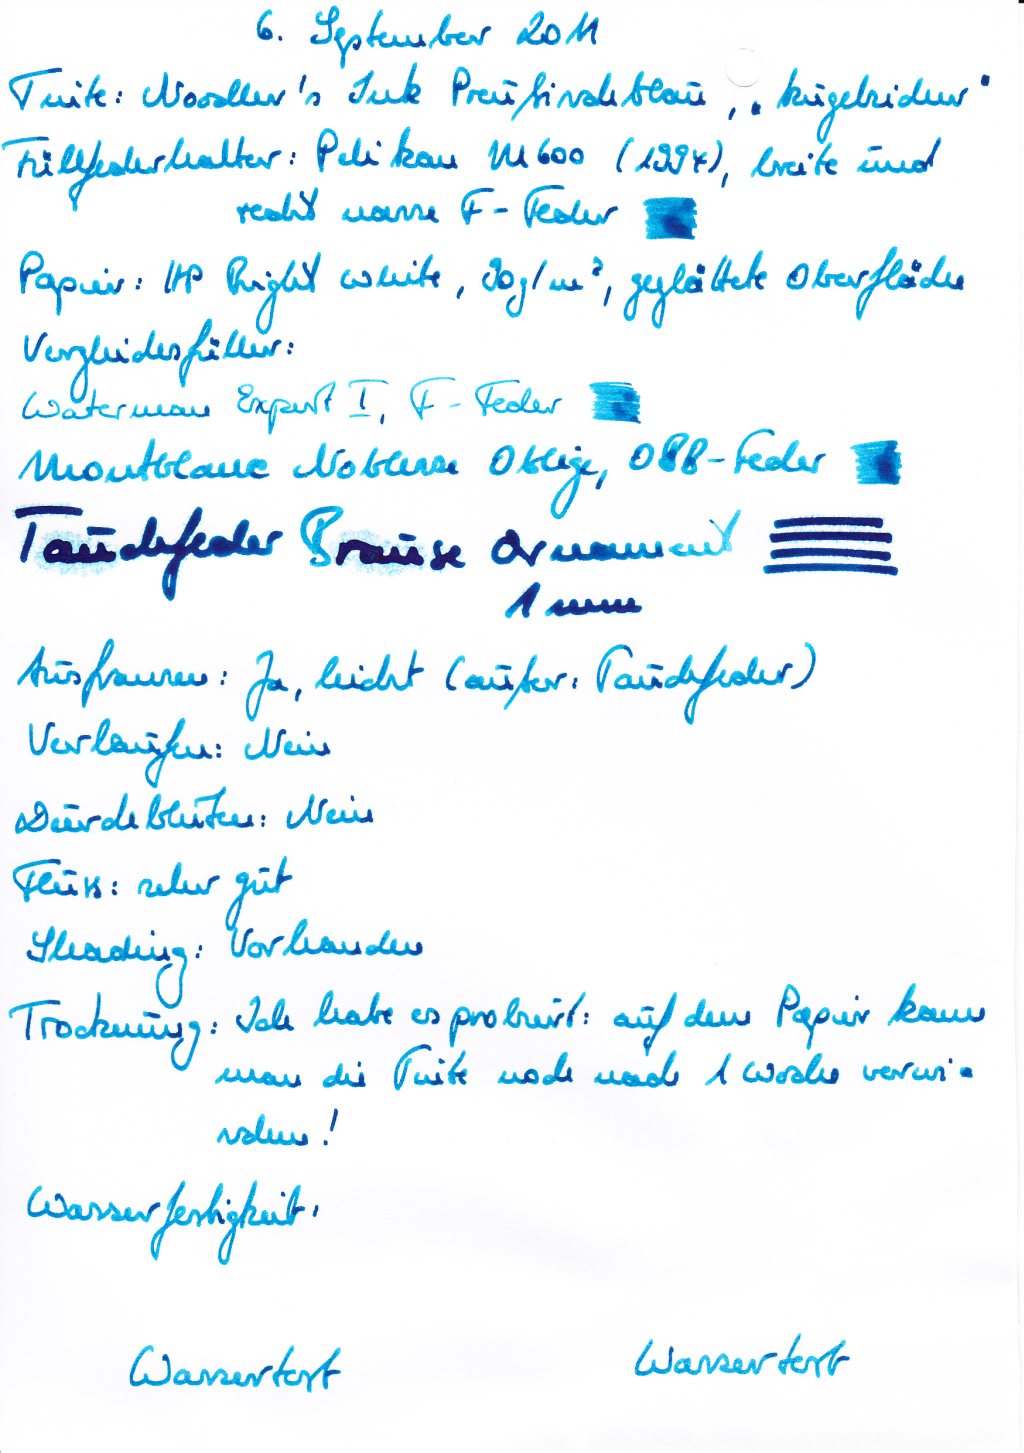 6. September 2011
Tinte: Noodler's Ink Preußischblau, "kugelsicher"
Füllfederhalter: Pelikan M600 (1994), breite und
recht nasse F-Feder
Papier: HP Bright White, 90g/m², geglättete Oberfläche
Vergleichsfüller:
Waterman Expert I, F-Feder
Montblanc Noblesse Oblige, OBB-Feder
Tauchfeder Brause Ornament
1 mm
Ausfransen: Ja, leicht (außer: Tauchfeder)
Verlaufen: Nein
Durchbluten: Nein
Fluss: sehr gut
Shading: Vorhanden
Trocknung: Ich habe es probiert: auf dem Papier kann
man die Tinte noch nach 1 Woche verwi-
schen!
Wasserfestigkeit:
Wassertest Wassertest